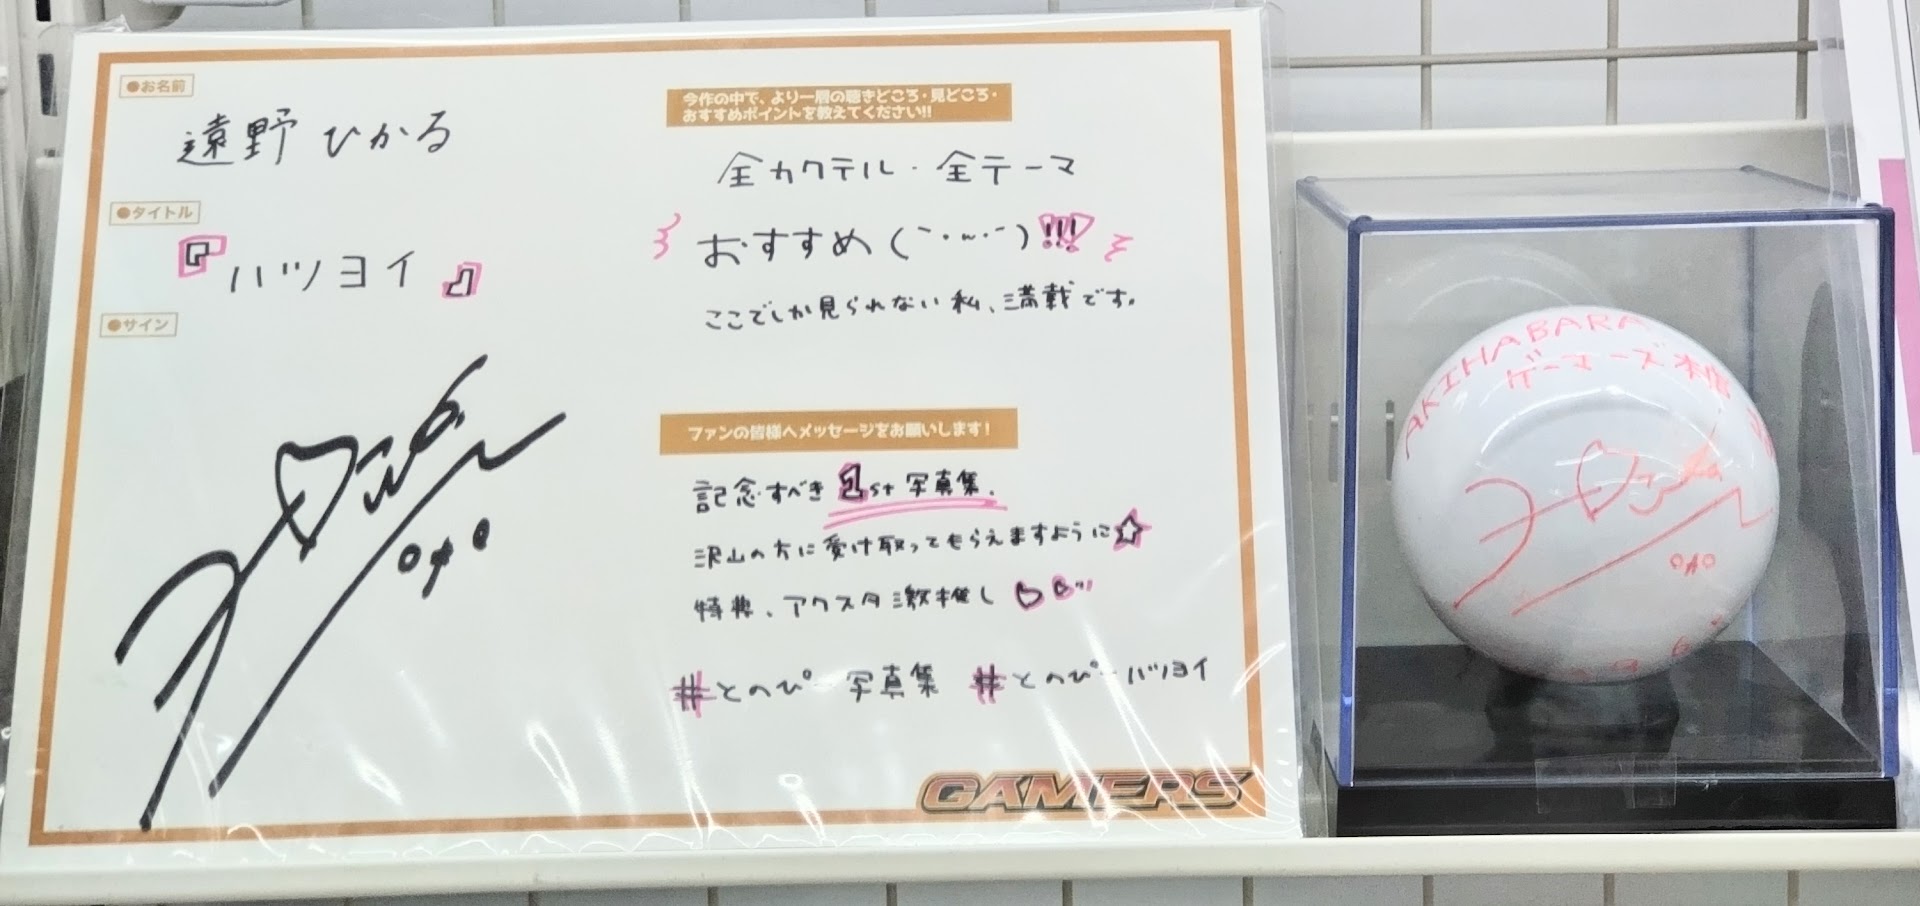 ●お名前
遠野ひかる
●タイトル
『ハツヨイ』
●サイン
今作の中で、より一層の聴きどころ・見どころ・
おすすめポイントを教えてください!!
全カクテル・全テーマ
おすすめ(｀･ω･´)!!!
ここでしか見られない私、満載です。
ファンの皆様へメッセージをお願いします!
記念すべき1st写真集、
沢山の方に受け取ってもらえますように☆
特典、アクスタ激推し♡♡
#とのぴー写真集 #とのぴーハツヨイ
GAMERS
AKIHABARA
ゲーマーズ本店